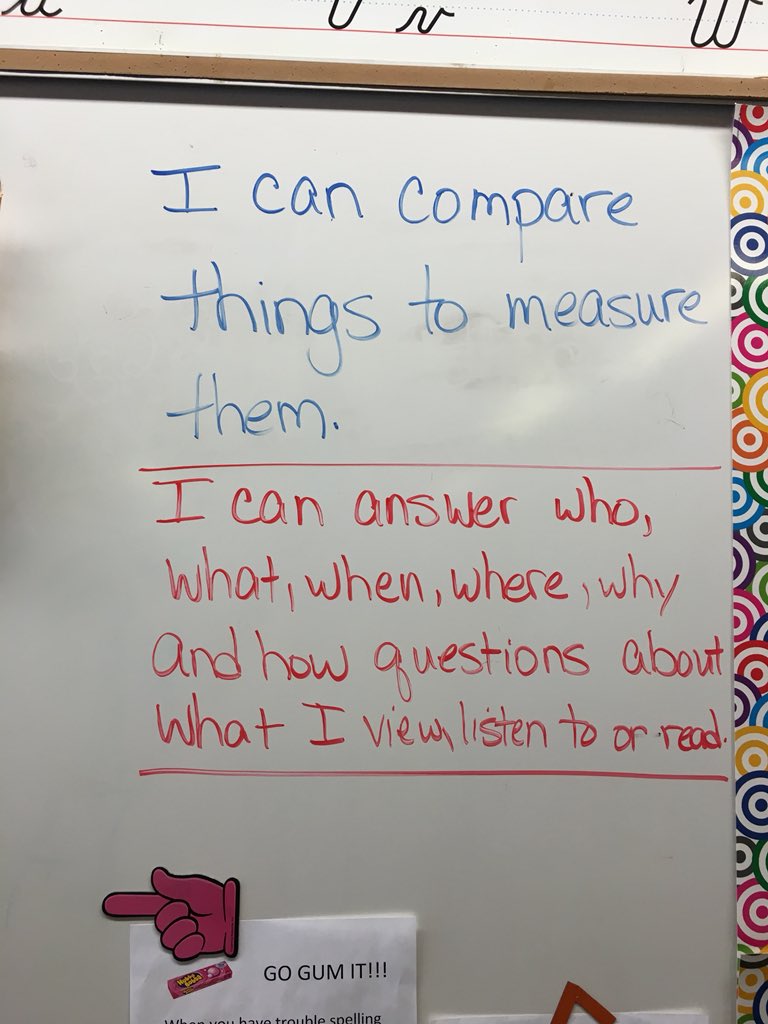 u v v W
I can compare
things to measure
them.
I can answer who,
what, when, where, why
and how questions about
what I view, listen to or read.
GO GUM IT!!!
Hubba Bubba
When you have trouble spelling